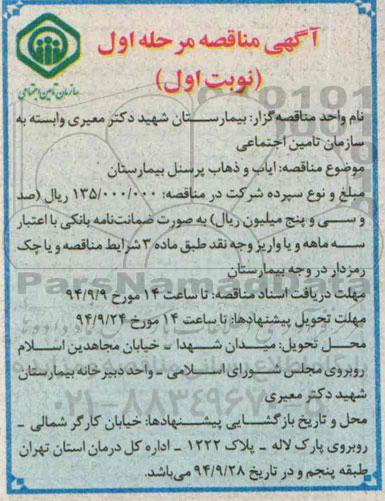 آگهی مناقصه مرحله اول
(نوبت اول)
سازمان تامین اجتماعی
نام واحد مناقصه گزار: بیمارستان شهید دکتر معیری وابسته به
سازمان تامین اجتماعی
موضوع مناقصه: ایاب و ذهاب پرسنل بیمارستان
مبلغ و نوع سپرده شرکت در مناقصه: ۱۳۵/۰۰۰/۰۰۰ ریال (صد
و سی و پنج میلیون ریال) به صورت ضمانت‌نامه بانکی با اعتبار
سه ماهه و یا واریز وجه نقد طبق ماده ۳ شرایط مناقصه و یا چک
رمزدار در وجه بیمارستان
مهلت دریافت اسناد مناقصه: تا ساعت ۱۴ مورخ ۹۴/۹/۹
مهلت تحویل پیشنهادها: تا ساعت ۱۴ مورخ ۹۴/۹/۲۴
محل تحویل: میدان شهدا - خیابان مجاهدین اسلام
روبروی مجلس شورای اسلامی - واحد دبیرخانه بیمارستان
شهید دکتر معیری
محل و تاریخ بازگشایی پیشنهادها: خیابان کارگر شمالی -
روبروی پارک لاله - پلاک ۱۲۲۲ - اداره کل درمان استان تهران
طبقه پنجم و در تاریخ ۹۴/۹/۲۸ می‌باشد.
ParsNamadData
۰۲۱-۸۸۳۴۹۶۷۰